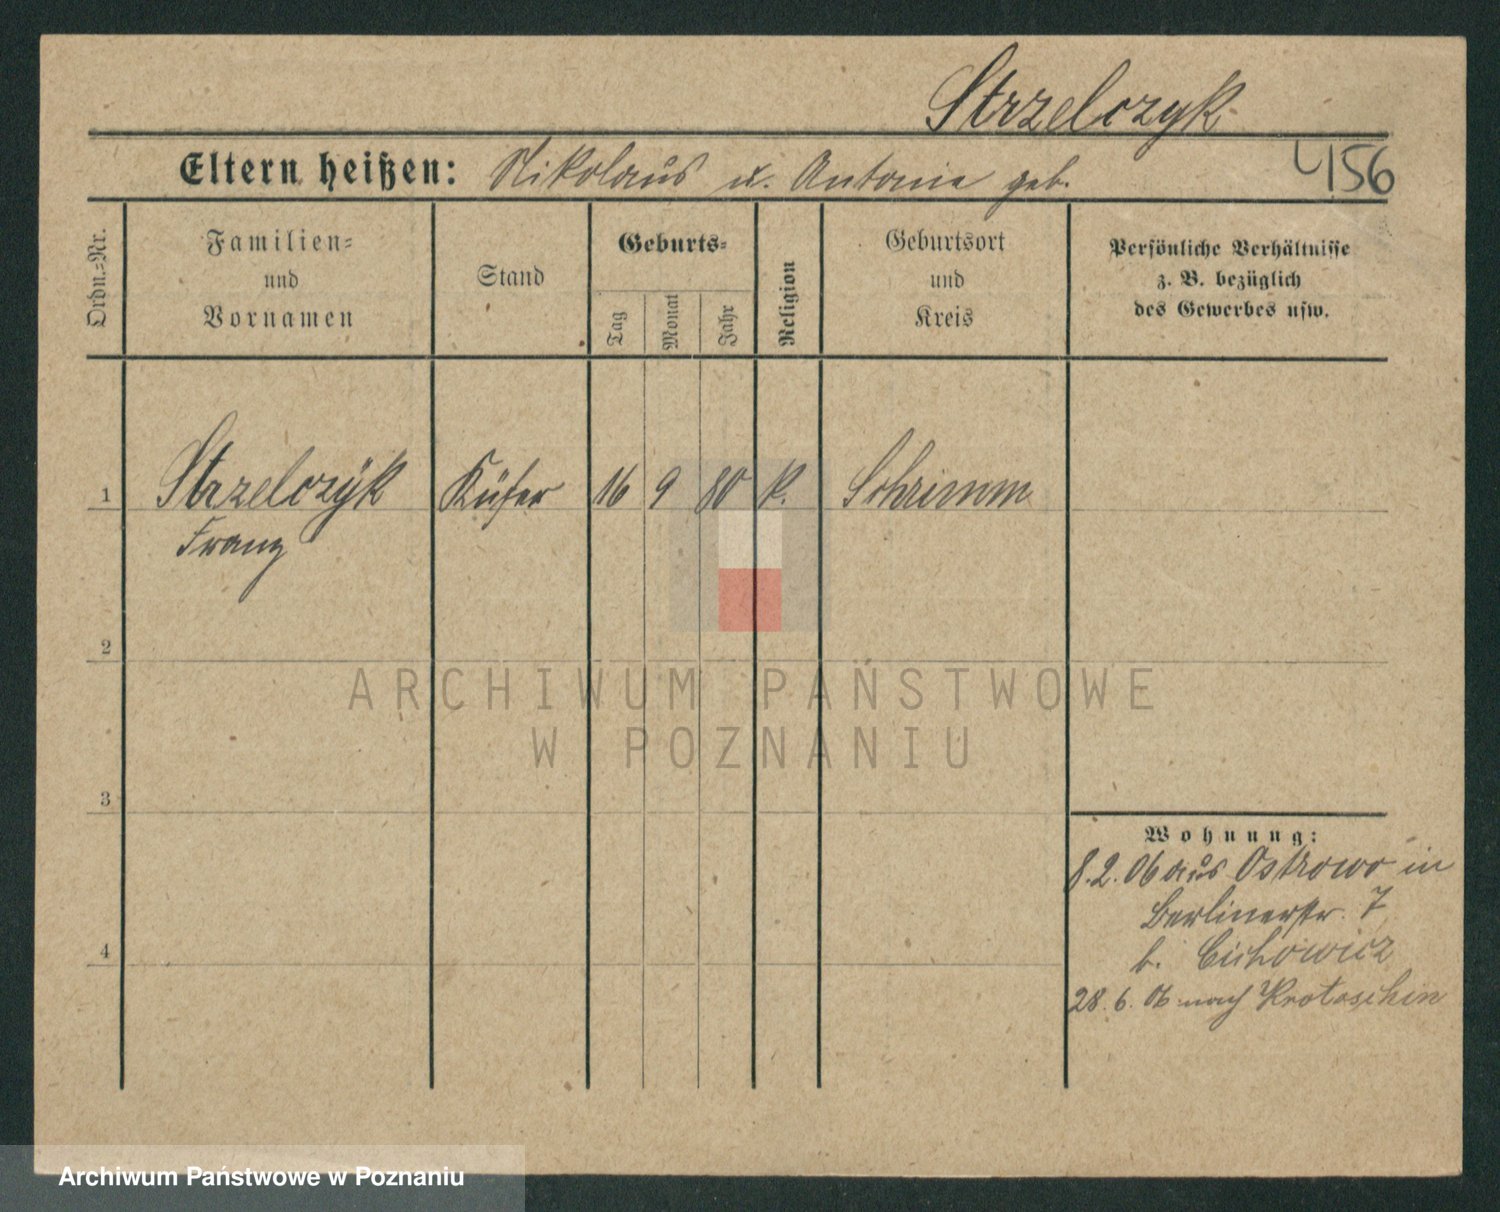 Strzelczyk
4156
Eltern heißen: Nikolaus u. Antonie geb.
Ordn.-Nr.
Familien-
und
Vornamen
Stand
Geburts-
Tag
Monat
Jahr
Religion
Geburtsort
und
Kreis
Persönliche Verhältnisse
z. B. bezüglich
des Gewerbes usw.
1 Strzelczyk Küfer 16 9 80 k. Schrimm
Franz
2
ARCHIWUM PAŃSTWOWE
W POZNANIU
3
Wohnung:
8.2.06 aus Ostrowo in
Berlinerstr. 7
b. Cichowicz
28.6.06 nach Krotoschin
4
Archiwum Państwowe w Poznaniu